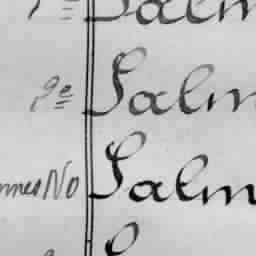 Salm
9e Salm
nnes No Salm